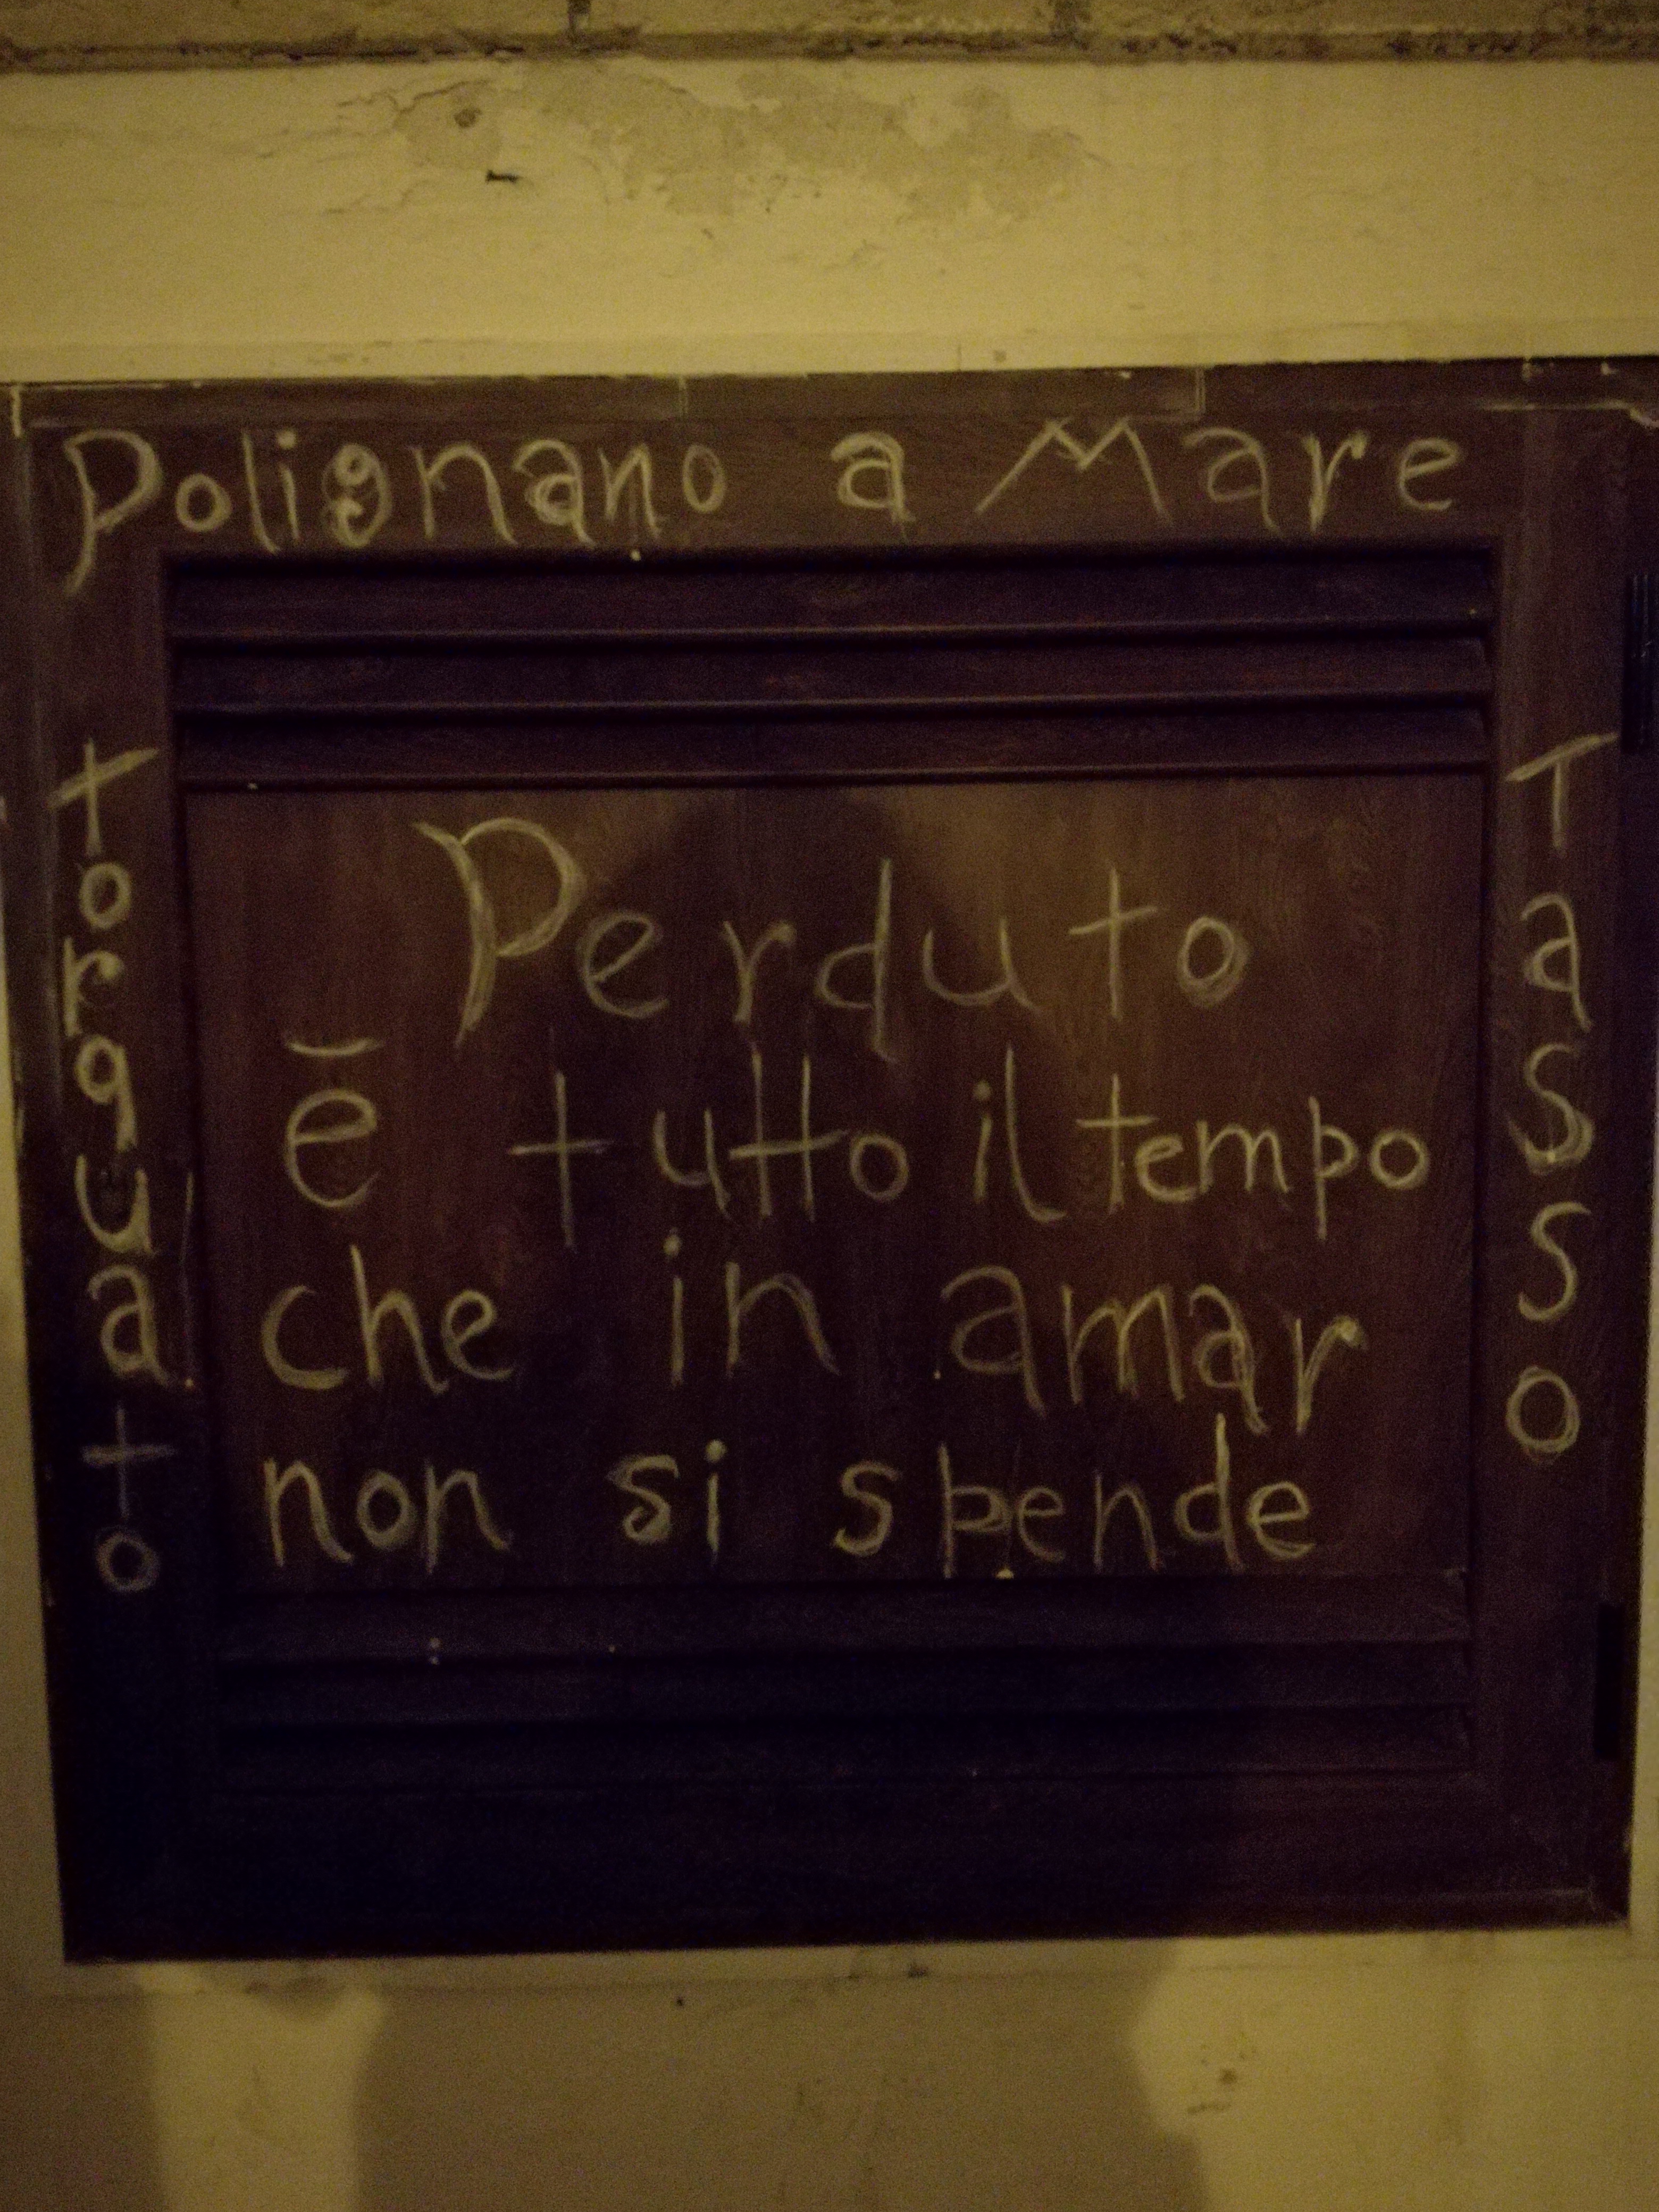 Polignano a Mare
Torquato
Perduto
ē tutto il tempo
che in amar
non si spende
Tasso